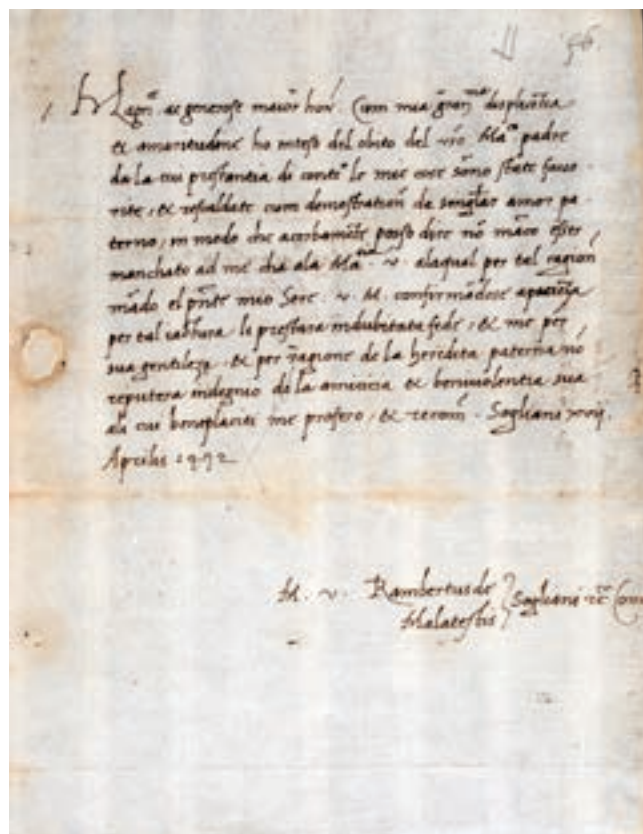 96.
Magn.ce ac generose maior hon. Cum mia gran.ma displicentia
& amaritudine ho inteso del obito del vro Ma.co padre
da la cui prestantia di cont.o le mie cose sono state favo
rite, & rescaldate cum demostration de singlar amor pa-
terno, in modo che acerbamẽte posso dire nõ mãco esser
manchato ad me che ala Ma.tia v. alaqual per tal ragion
mãdo el pñte mio Sere. v. M. confirmãdose apacieza
per tal iattura li prestara indubitata fede, & me per
sua gentileza, & per ragione de la heredita paterna nõ
reputera indegnio di la amicicia & benivolentia sua
ali cui beneplaciti me profero, & recom. Sogliani xvij.
Aprilis 1492
M. v. Rambertus de
Malatestis
Sogliani &c Com